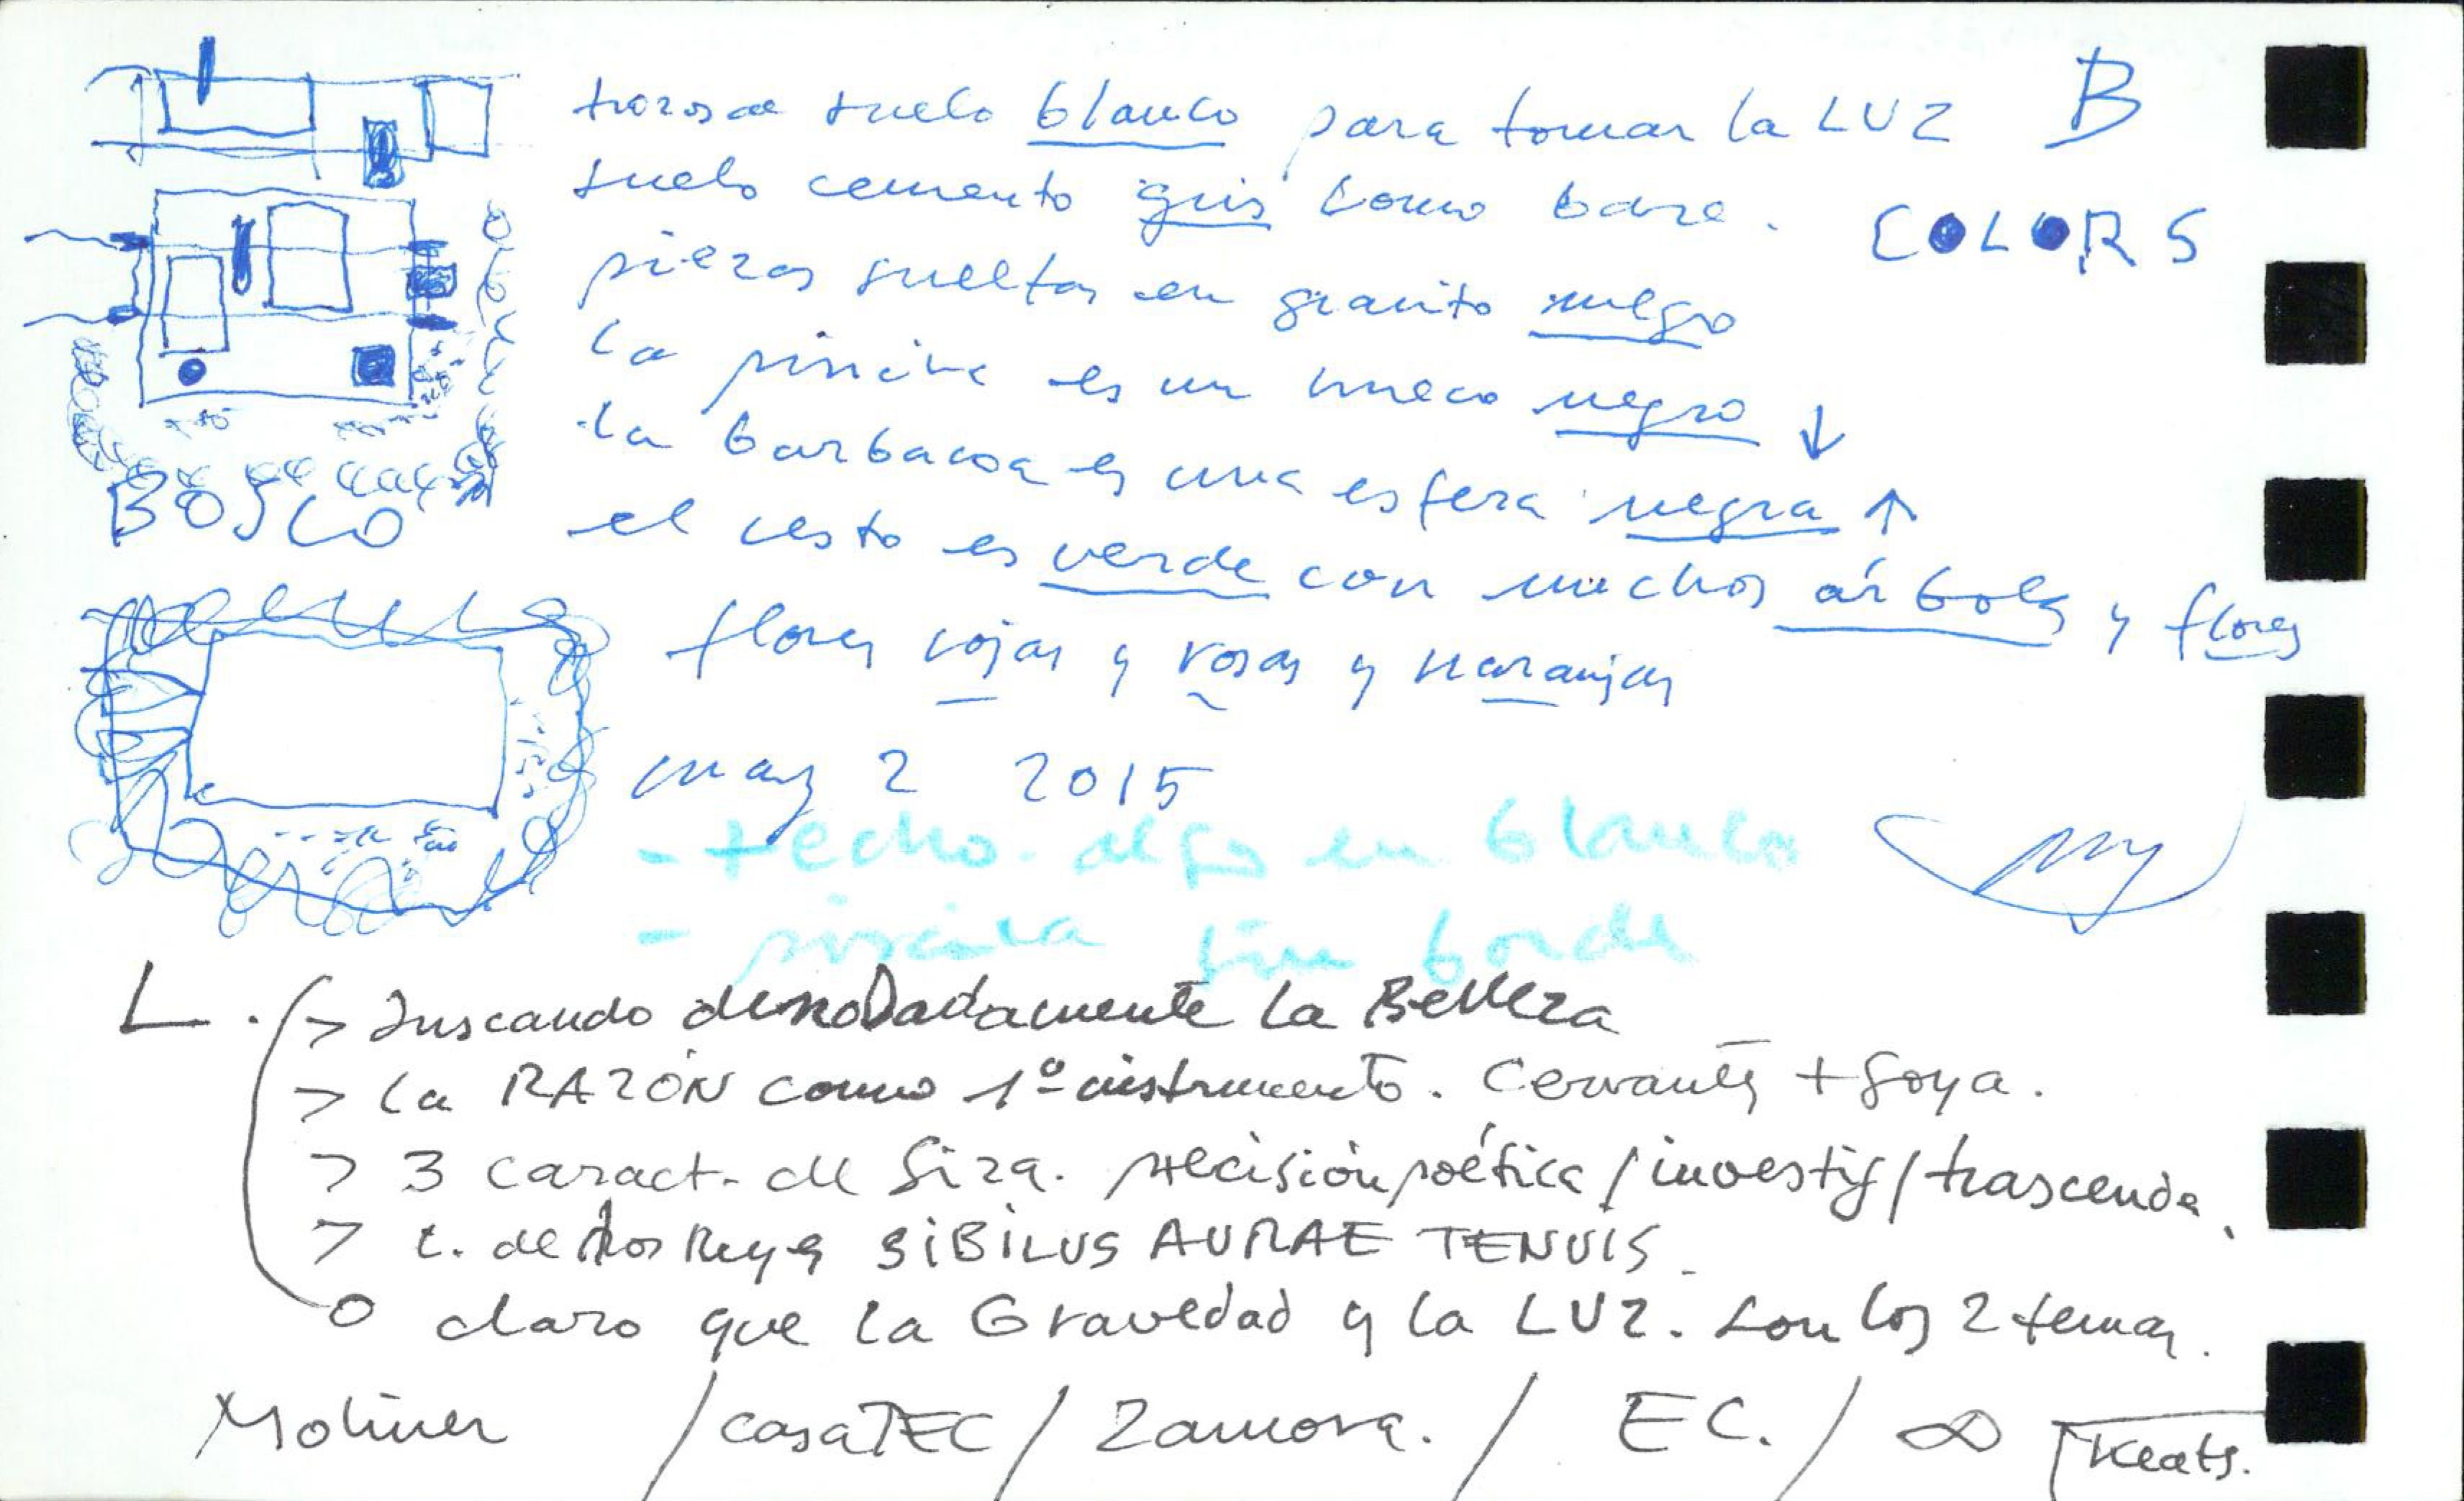 trozos de suelo blanco para tomar la LUZ B
suelo cemento gris como base. COLORS
piezas sueltas en granito negro
la piscina es un hueco negro ↓
la barbacoa es una esfera negra ↑
el resto es verde con muchos árboles y flores
flores rojas y rosas y naranjas
BOSCO
may 2 2015
- techo. algo en blanco
- piscina sin borde
L. > Buscando denodadamente la Belleza
> la RAZÓN como 1º instrumento. Cervantes + Goya.
> 3 caract. de Siza. precisión poética / investig / trascende.
> L. de los Reyes SIBILUS AURAE TENUIS.
O claro que la Gravedad y la LUZ. son los 2 temas.
Moliner / casaTEC / Zamora. / EC. / ∞ Keats.